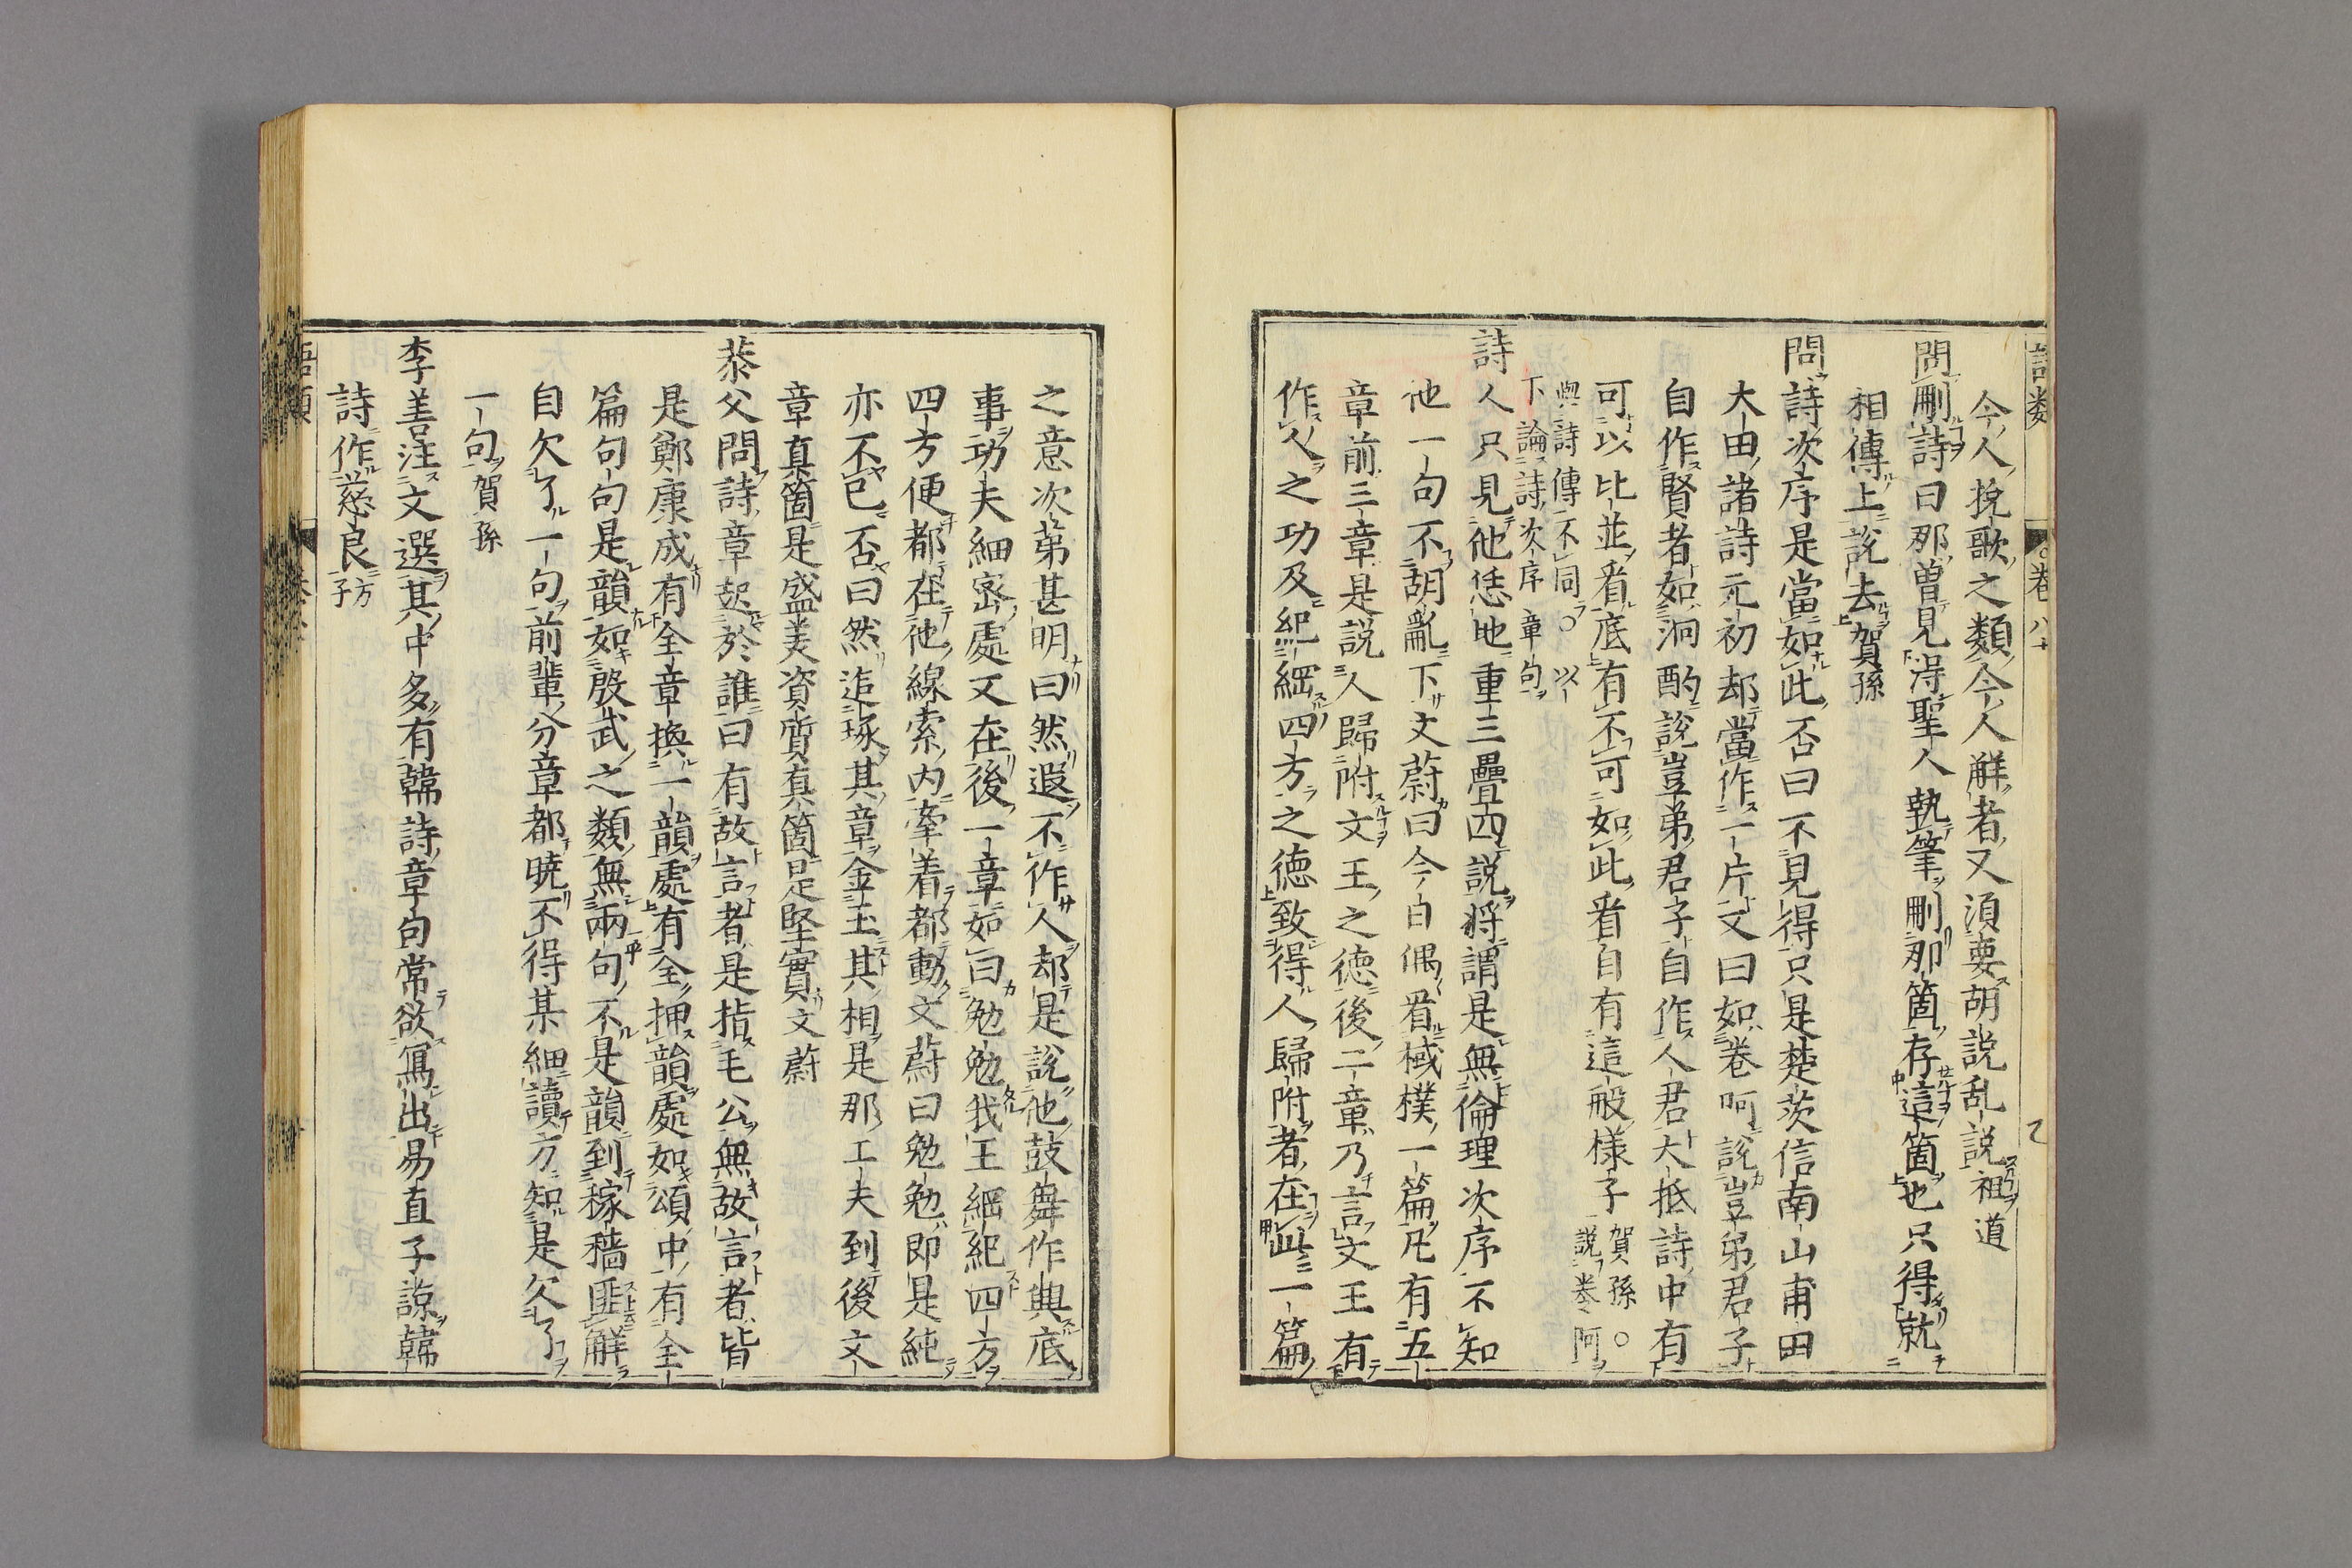 今人挽歌之類今人解者又須要胡説乱説祖道
問刪詩曰那曽見得聖人執筆刪那箇存這箇也只得就
相傳上説去賀孫
問詩次序是當如此否曰不見得只是楚茨信南山甫田
大田諸詩元初却當作一片又曰如卷阿説豈弟君子
自作賢者如泂酌説豈弟君子自作人君大抵詩中有
可以比並看底有不可如此看自有這般樣子賀孫○説卷阿
與詩傳不同○以下論詩次序章句
詩人只見他恁地重三疊四説将謂是無倫理次序不知
他一句不胡亂下文蔚曰今日偶看棫樸一篇凡有五
章前三章是説人歸附文王之徳後二章乃言文王有
作人之功及紀綱四方之徳致得人歸附者在此一篇
之意次第甚明曰然遐不作人却是説他鼓舞作興底
事功夫細宻處又在後一章如曰勉勉我王綱紀四方
四方便都在他線索内牽着都動文蔚曰勉勉即是純
亦不已否曰然追琢其章金玉其相是那工夫到後文
章真箇是盛美資質真箇是堅實文蔚
恭父問詩章起於誰曰有故言者是指毛公無故言者皆
是鄭康成有全章換一韻處有全押韻處如頌中有全
篇句句是韻如殷武之類無兩句不是韻到稼穡匪解
自欠了一句前輩分章都曉不得某細讀方知是欠了
一句賀孫
李善注文選其中多有韓詩章句常欲寫出易直子諒韓
詩作慈良方子
語類
卷八十